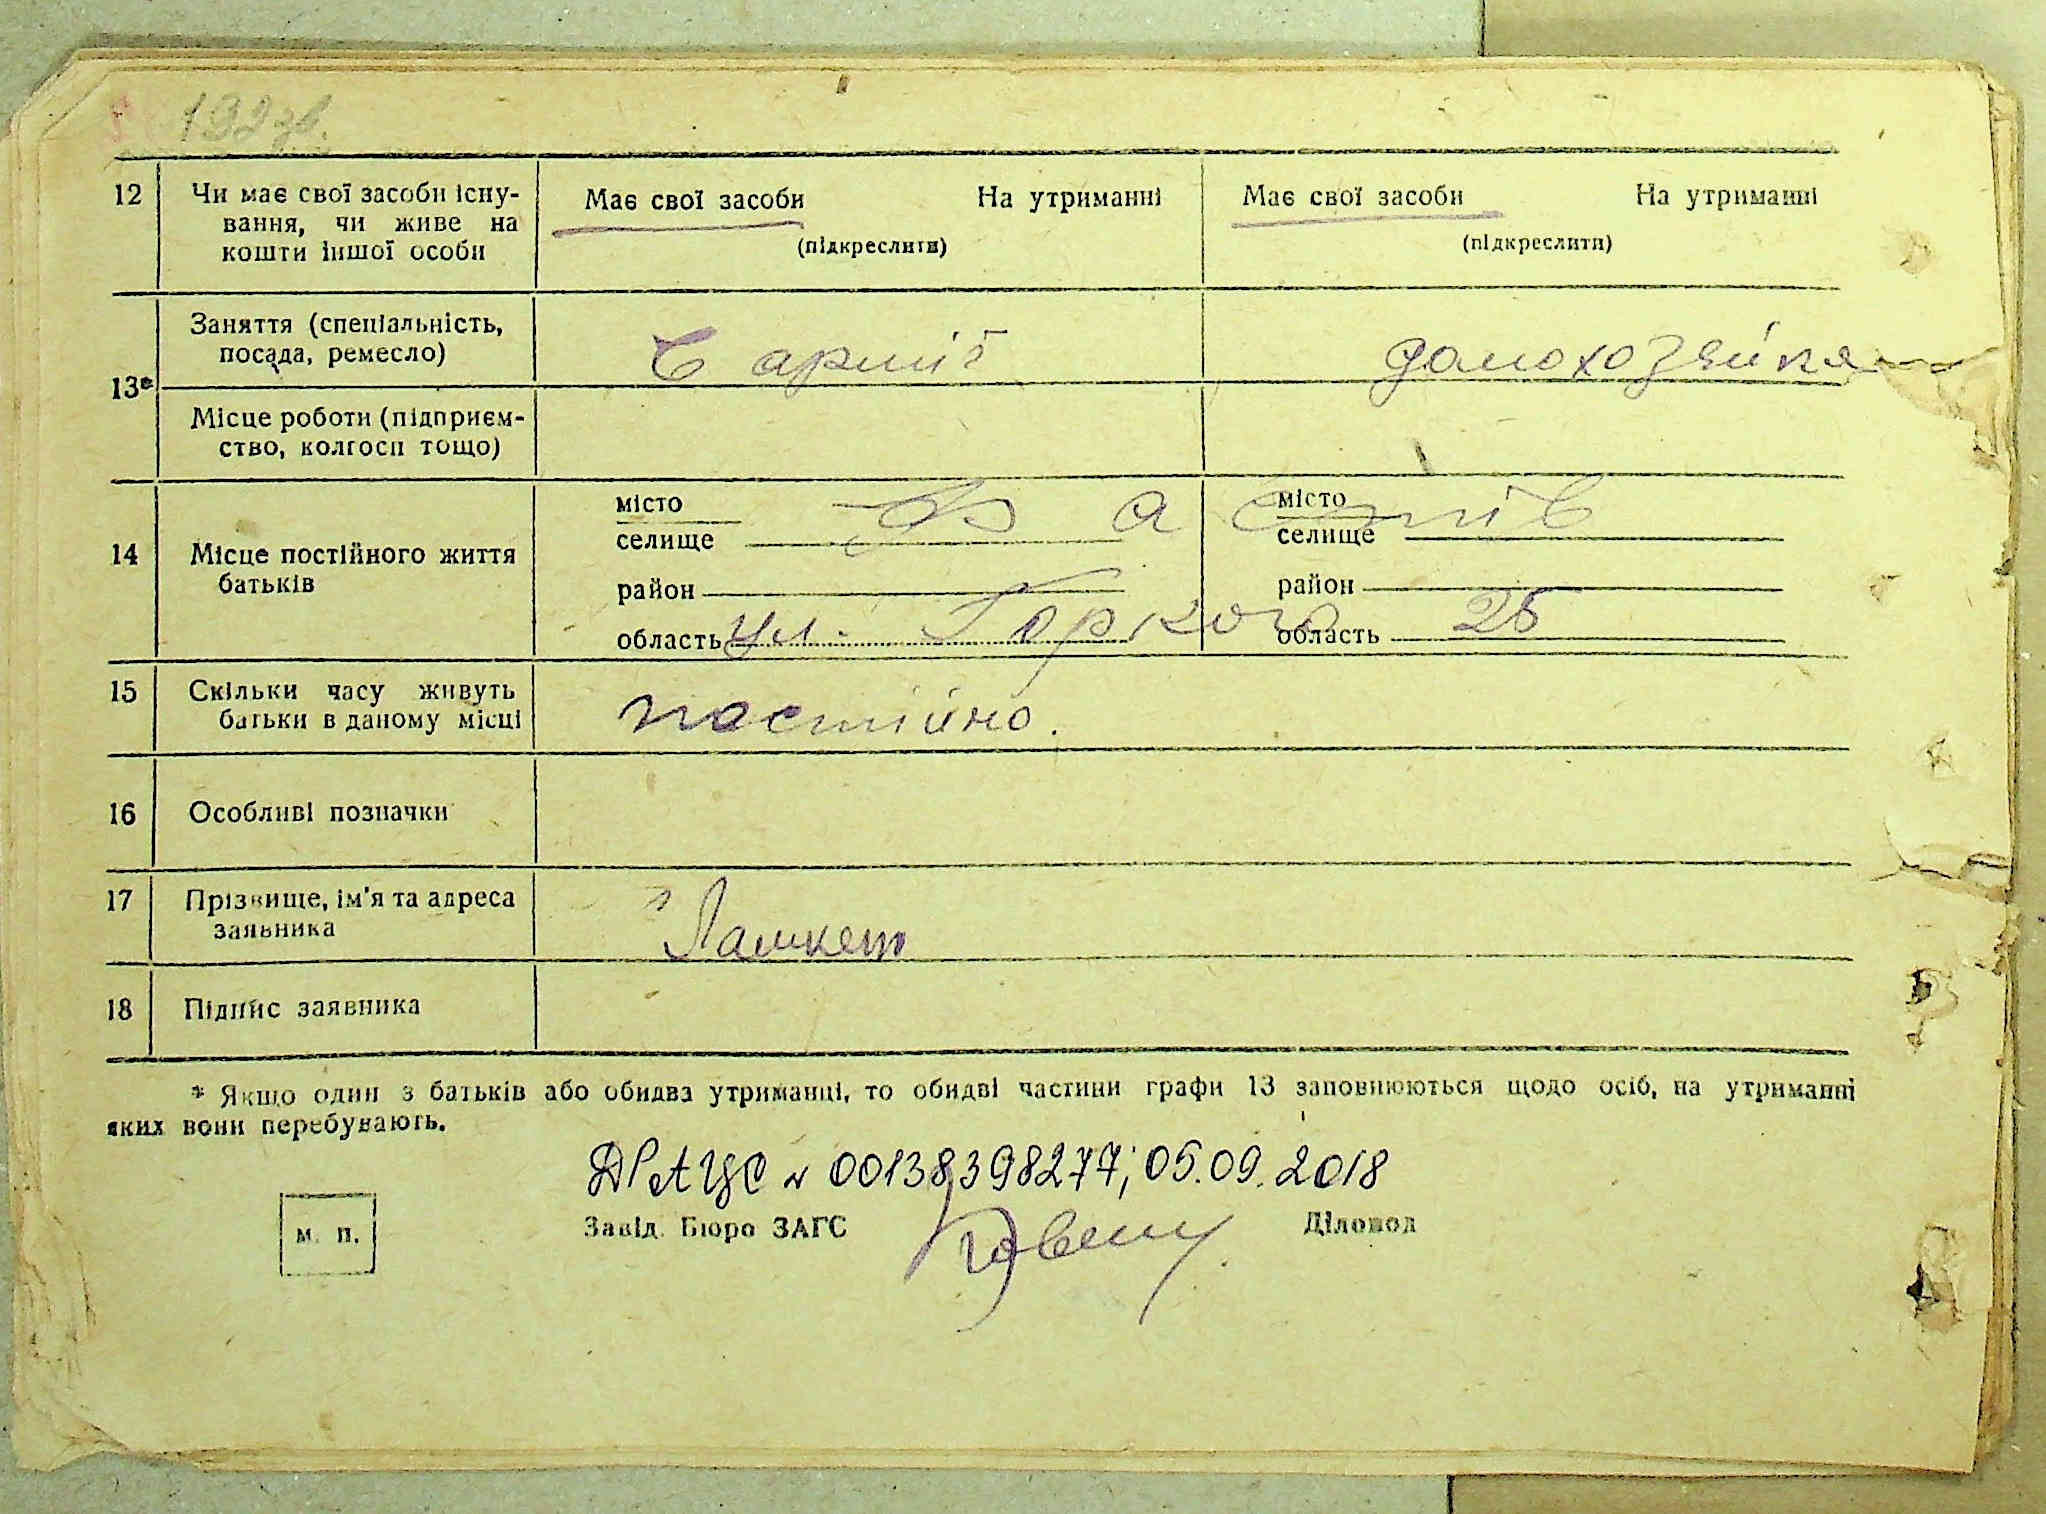 192 зв.
12 Чи має свої засоби існу-
вання, чи живе на
кошти іншої особи
Має свої засоби На утриманні
(підкреслити)
Має свої засоби На утриманні
(підкреслити)
13* Заняття (спеціальність,
посада, ремесло)
в армії
домохозяйка
Місце роботи (підприєм-
ство, колгосп тощо)
14 Місце постійного життя
батьків
місто
селище
район
область
місто
селище
район
область
Фастів
ул. Горкого 25
15 Скільки часу живуть
батьки в даному місці
постійно.
16 Особливі позначки
17 Прізвище, ім'я та адреса
заявника
18 Підпис заявника
* Якщо один з батьків або обидва утриманці, то обидві частини графи 13 заповнюються щодо осіб, на утриманні
яких вони перебувають.
ДРАЦС № 00138398277; 05.09.2018
м. п.
Завід. Бюро ЗАГС Діловод